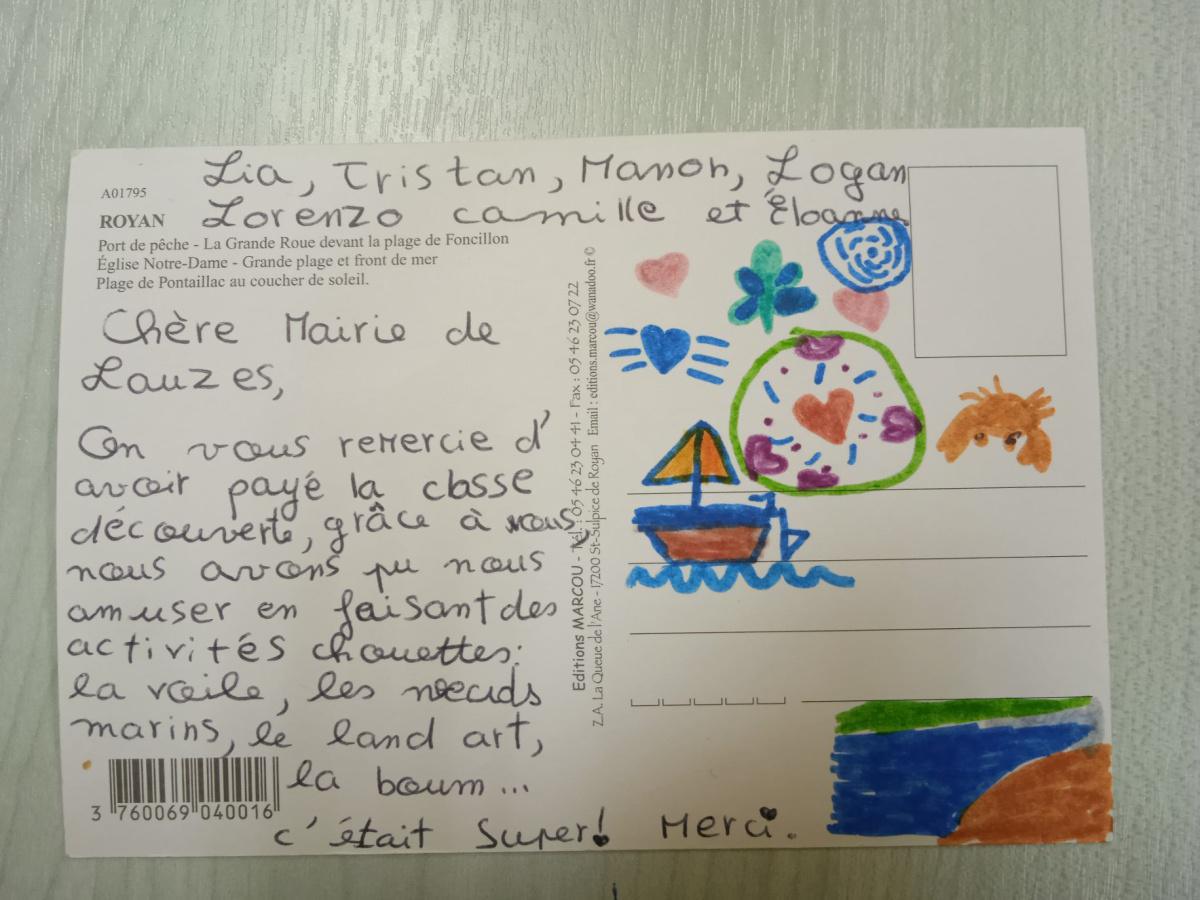 Lia, Tristan, Manon, Logan
Lorenzo camille et Éloanne
A01795
ROYAN
Port de pêche - La Grande Roue devant la plage de Foncillon
Église Notre-Dame - Grande plage et front de mer
Plage de Pontaillac au coucher de soleil.
Chère Mairie de
Lauzes,
On vous remercie d'
avoir payé la classe
découverte, grâce à vous,
nous avons pu nous
amuser en faisant des
activités chouettes:
la voile, les nœuds
marins, le land art,
la boum...
c'était Super! Merci.
3 760069 040016
Editions MARCOU - Tél. : 05 46 23 04 41 - Fax : 05 46 23 07 22
Z.A. La Queue de l'Ane - 17200 St-Sulpice de Royan Email : editions.marcou@wanadoo.fr ©